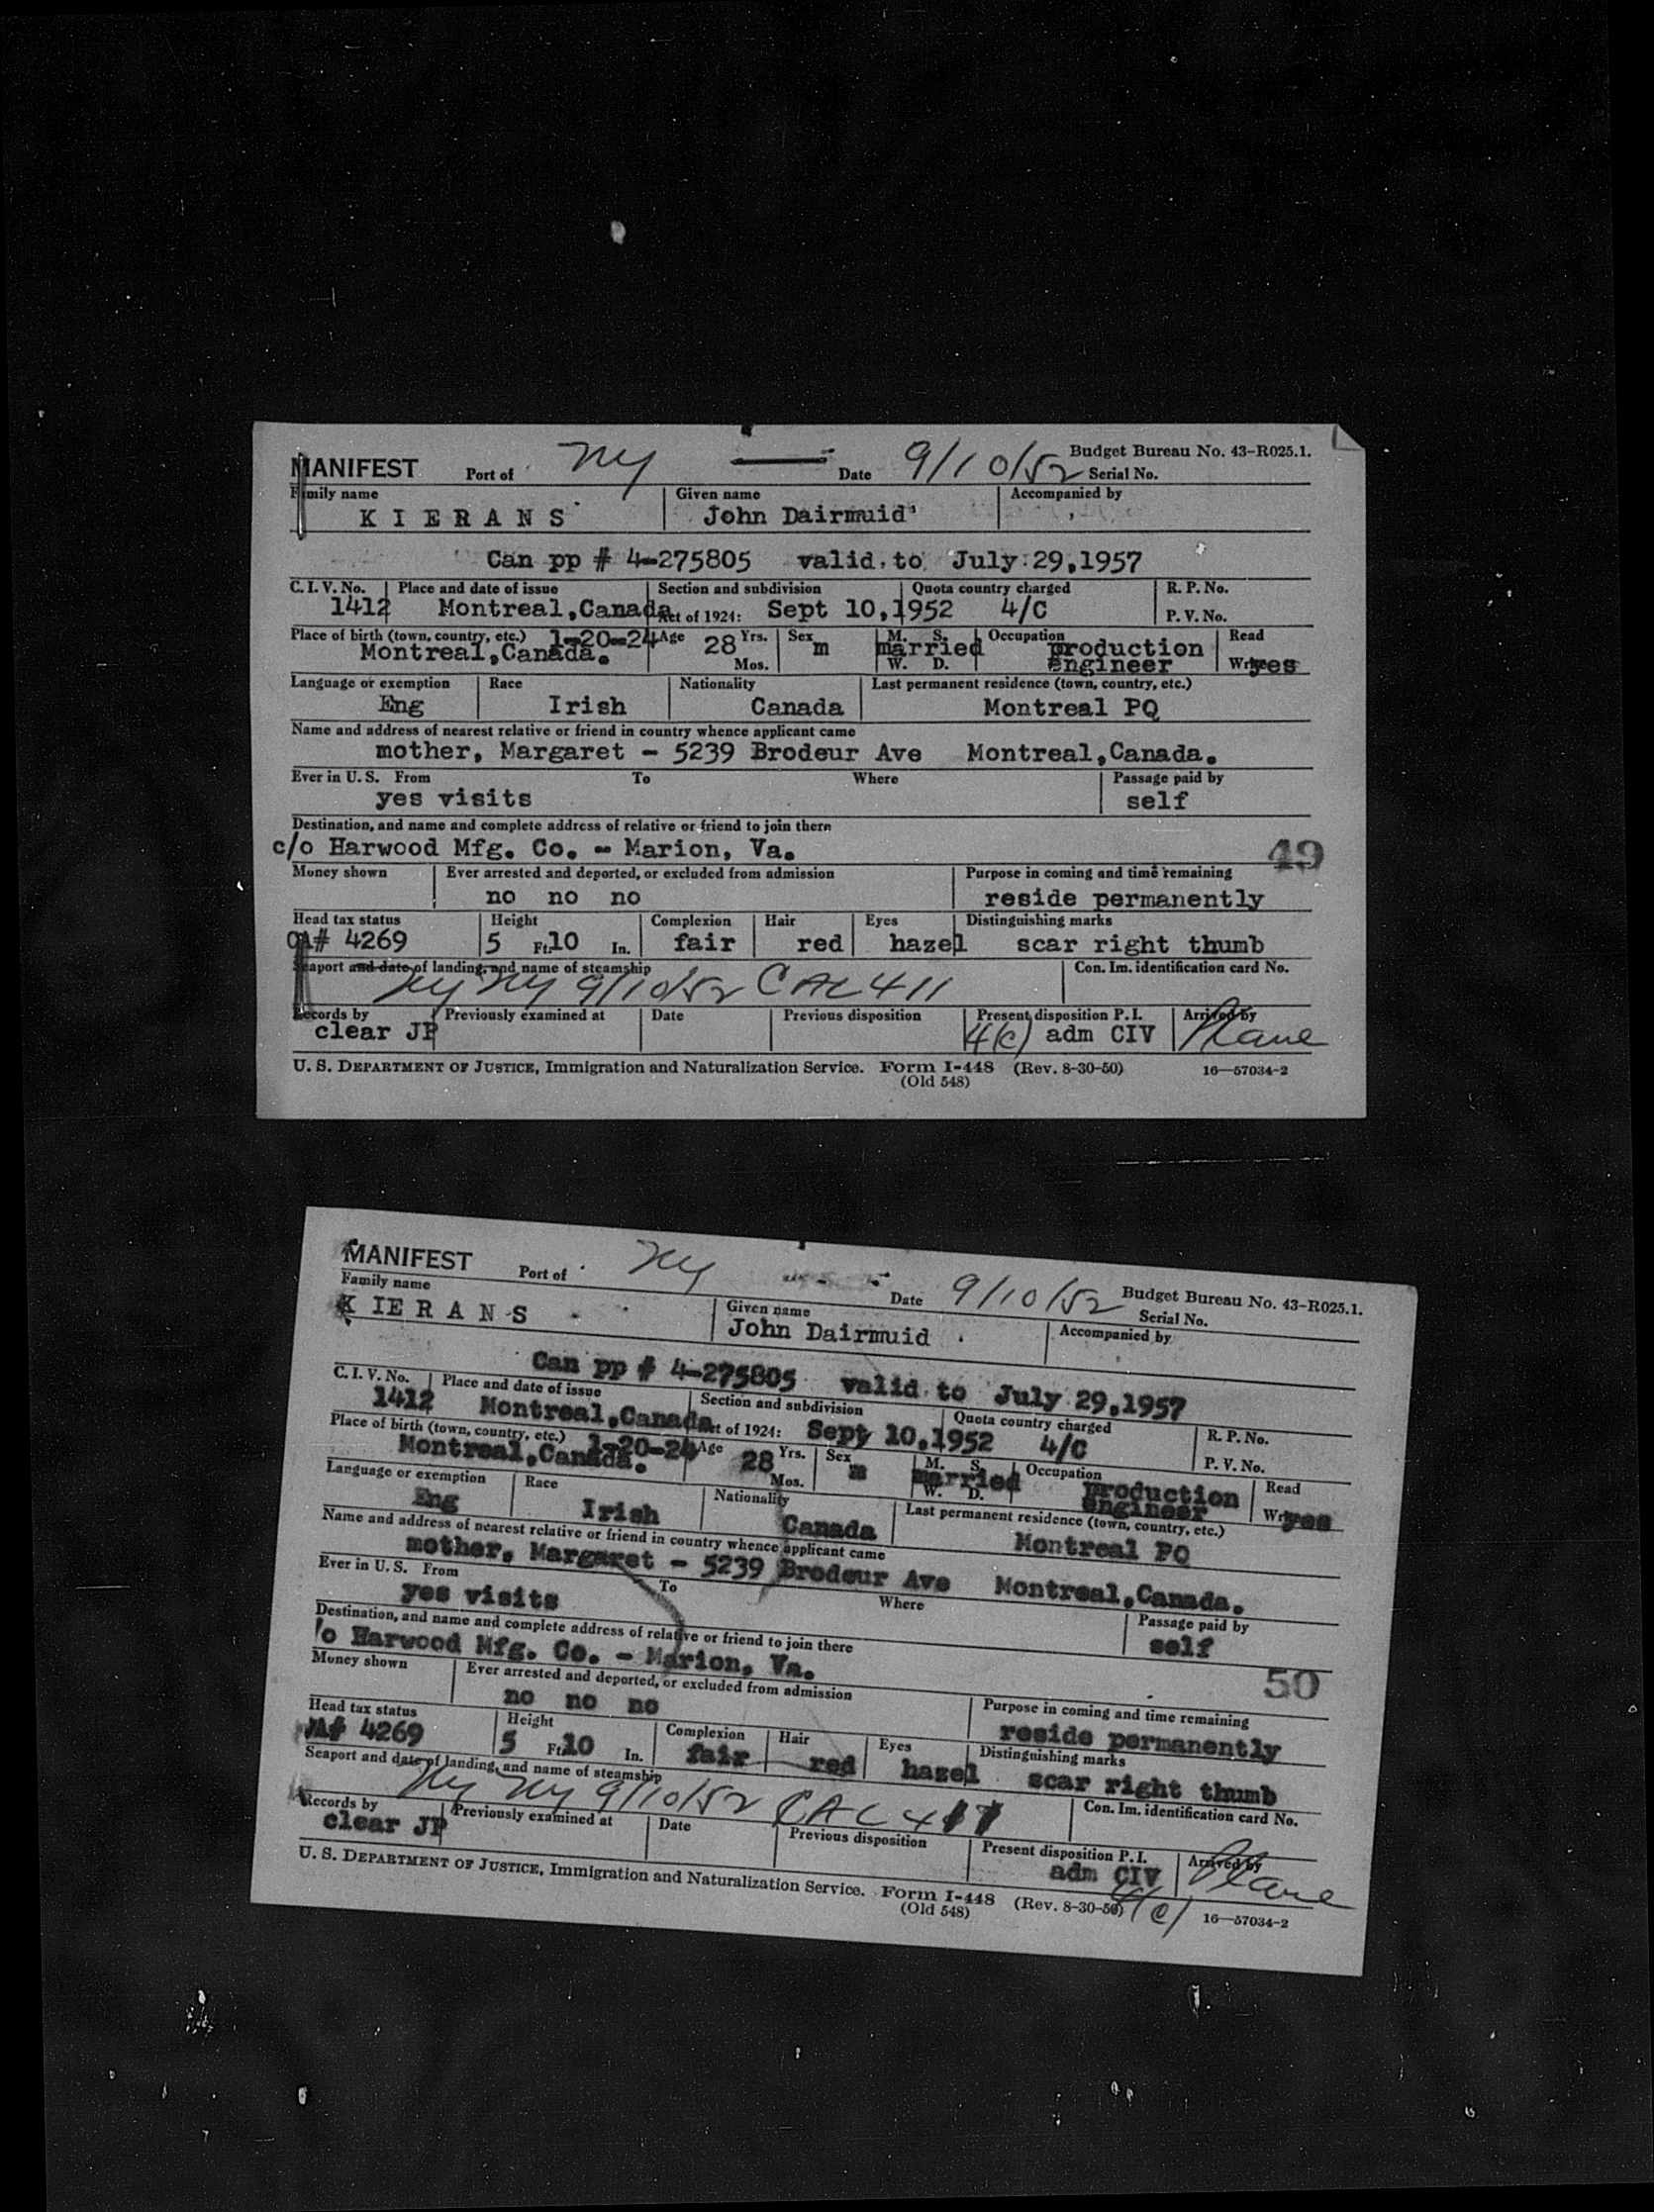 MANIFEST Port of NY Date 9/10/52 Budget Bureau No. 43-R025.1.
Serial No.
Family name Given name Accompanied by
K I E R A N S John Dairmuid
Can pp # 4-275805 valid to July 29,1957
C. I. V. No. Place and date of issue Section and subdivision Quota country charged R. P. No.
1412 Montreal,Canada Act of 1924: Sept 10,1952 4/C P. V. No.
Place of birth (town, country, etc.) 1-20-24 Age 28 Yrs. Sex M. S. Occupation production Read
Montreal,Canada. Mos. m married W. D. engineer Write yes
Language or exemption Race Nationality Last permanent residence (town, country, etc.)
Eng Irish Canada Montreal PQ
Name and address of nearest relative or friend in country whence applicant came
mother, Margaret - 5239 Brodeur Ave Montreal,Canada.
Ever in U. S. From To Where Passage paid by
yes visits self
Destination, and name and complete address of relative or friend to join there
c/o Harwood Mfg. Co. - Marion, Va. 49
Money shown Ever arrested and deported, or excluded from admission Purpose in coming and time remaining
no no no reside permanently
Head tax status Height Complexion Hair Eyes Distinguishing marks
CA# 4269 5 Ft. 10 In. fair red hazel scar right thumb
Seaport and date of landing, and name of steamship Con. Im. identification card No.
NY NY 9/10/52 CAL 411
Records by Previously examined at Date Previous disposition Present disposition P. I. Arrived by
clear JP 4(c) adm CIV Plane
U. S. DEPARTMENT OF JUSTICE, Immigration and Naturalization Service. Form I-448 (Rev. 8-30-50) 16—57034-2
(Old 548)
MANIFEST Port of NY Date 9/10/52 Budget Bureau No. 43-R025.1.
Serial No.
Family name Given name Accompanied by
K IE R A N S John Dairmuid
Can pp # 4-275805 valid to July 29,1957
C. I. V. No. Place and date of issue Section and subdivision Quota country charged R. P. No.
1412 Montreal,Canada Act of 1924: Sept 10,1952 4/C P. V. No.
Place of birth (town, country, etc.) 1-20-24 Age 28 Yrs. Sex M. S. Occupation production Read
Montreal,Canada. Mos. m married W. D. engineer Write yes
Language or exemption Race Nationality Last permanent residence (town, country, etc.)
Eng Irish Canada Montreal PQ
Name and address of nearest relative or friend in country whence applicant came
mother, Margaret - 5239 Brodeur Ave Montreal,Canada.
Ever in U. S. From To Where Passage paid by
yes visits self
Destination, and name and complete address of relative or friend to join there
/o Harwood Mfg. Co. - Marion, Va. 50
Money shown Ever arrested and deported, or excluded from admission Purpose in coming and time remaining
no no no reside permanently
Head tax status Height Complexion Hair Eyes Distinguishing marks
A# 4269 5 Ft. 10 In. fair red hazel scar right thumb
Seaport and date of landing, and name of steamship Con. Im. identification card No.
NY NY 9/10/52 CAL 411
Records by Previously examined at Date Previous disposition Present disposition P. I. Arrived by
clear JP adm CIV Plane
4(c)
U. S. DEPARTMENT OF JUSTICE, Immigration and Naturalization Service. Form I-448 (Rev. 8-30-50) 16—57034-2
(Old 548)